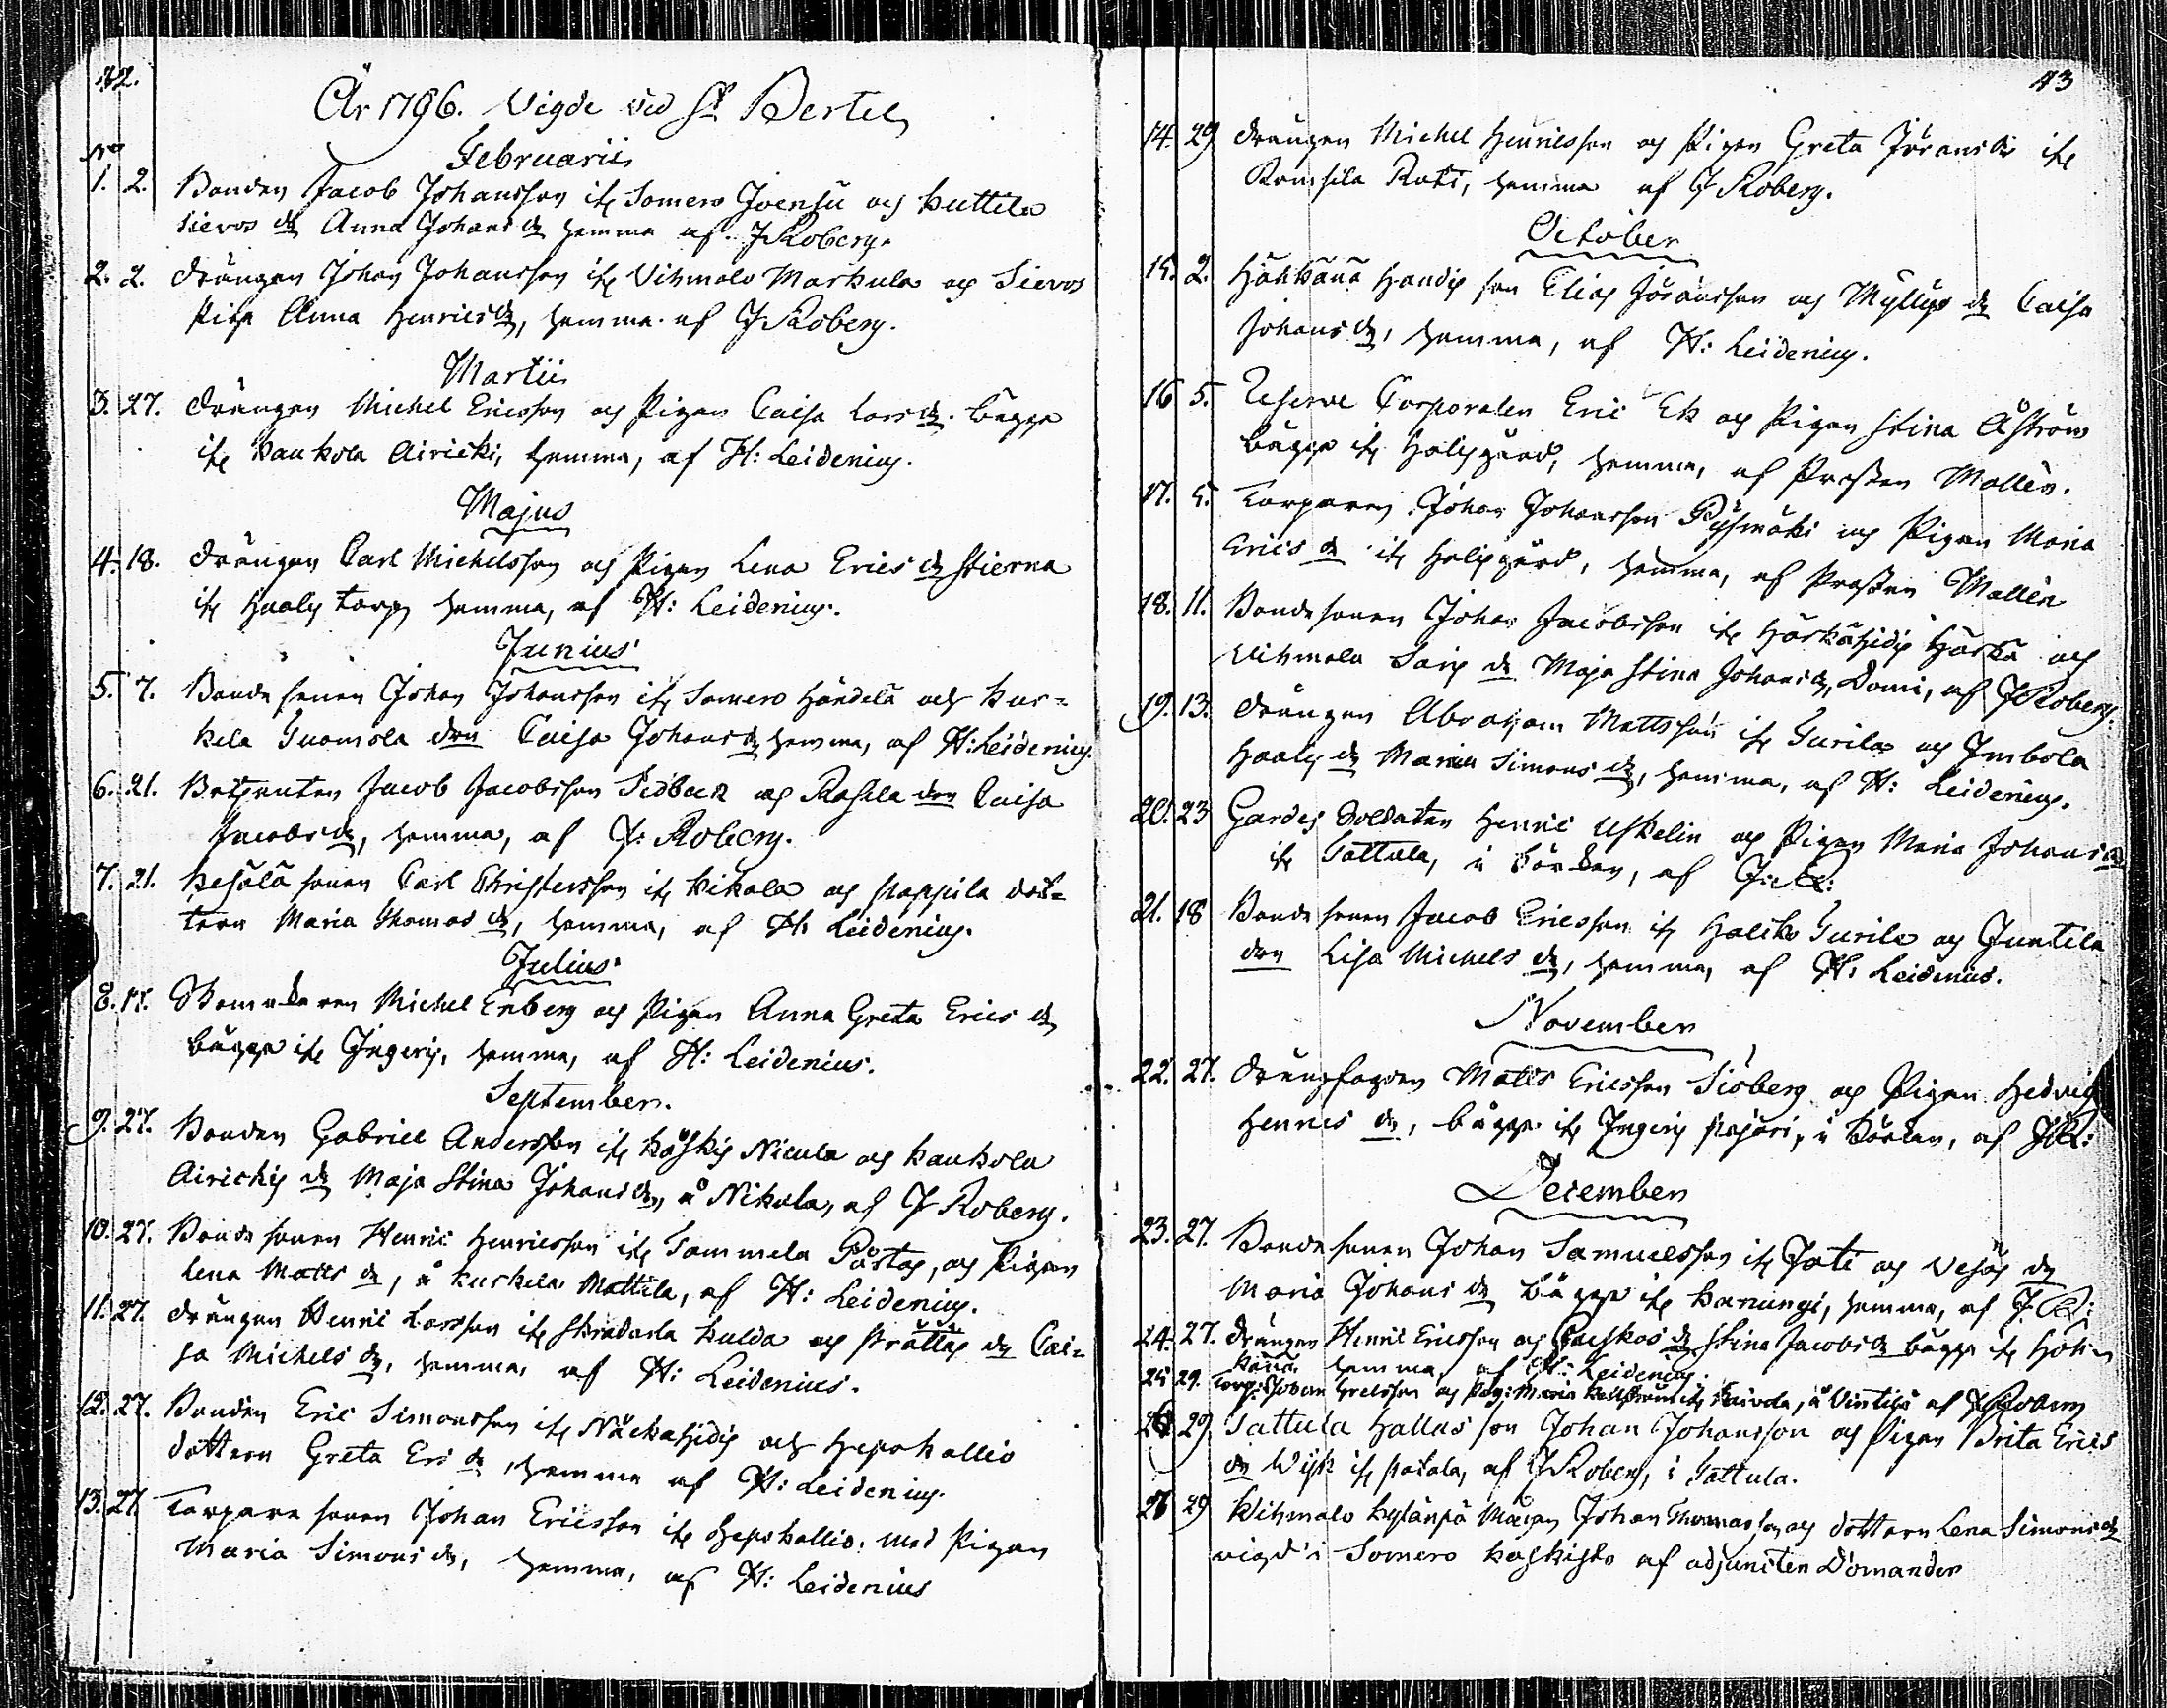 42.
År 1796. Vigde vid St Bertel
No
Februarii
1. 2. Bonden Jacob Johansson ifr Somero Joensu och Kuttila
Sievos dr Anna Johans dr hemma af J Roberg.
2. 2. drängen Johan Johansson ifr Vihmalo Markula och Sievos
Piga Anna Henrics dr, hemma af J Roberg.
Martii
3. 27. drängen Michel Ericsson och Pigan Caisa Lars dr. bägge
ifr Kaukola Airicki, hemma, af H: Leidenius.
Majus
4. 18. drängen Carl Michelsson och Pigan Lena Erics dr Stierna
ifr Haalis torp hemma, af H: Leidenius.
Junius
5. 7. Bonde sonen Johan Johansson ifr Somero Händelä och Kur=
kela Tuomola dren Caisa Johans dr hemma, af H: Leidenius.
6. 21. Jacob Jacobsson och Rasila dren Caisa
Jacobs dr, hemma, af J: Roberg.
7. 21. Kesälä sonen Carl Christersson ifr Kikala och Pappila dot=
tren Maria Thomas dr, hemma, af H: Leidenius.
Julius
8. 17. Skomakaren Michel Enberg och Pigan Anna Greta Erics dr,
bägge ifr Ingeris, hemma, af H: Leidenius.
September.
9. 27. Bonden Gabriel Andersson ifr Koskis Nicula och Kaukola
Airickis dr Maja Stina Johans dr, å Nikula, af J Roberg.
10. 27. Bonde sonen Henric Henricsson ifr Tammela Påstas, och Pigan
Lena Matts dr, å Kurkela Mattila, af H: Leidenius.
11. 27. drängen Henric Larsson ifr Kulda och Prättas dr Cai=
sa Michels dr, hemma, af H: Leidenius.
12. 27. Bonden Eric Simonsson ifr och Hepokallio
dottren Greta Eri dr, hemma af H: Leidenius.
13. 27. Torpare sonen Johan Ericsson ifr Hepokallio, med Pigan
Maria Simons dr, hemma, af H: Leidenius
43
14. 29 drängen Michel Henricsson och Pigan Greta Jörans dr ifr
Romsila Rati, hemma af J Roberg.
October
15. 2. Handis son Elias Jöransson och Myllys dr Caisa
Johans dr, hemma, af H: Leidenius.
16 5. Reserve Corporalen Eric Ek och Pigan Stina Åström
bägge ifr Halisgård, hemma, af Prosten Mollin.
17. 5. Torparen Johan Johansson Pysmäki och Pigan Maria
Erics dr ifr Halisgård, hemma, af Prosten Mollin
18. 11. Bonde sonen Johan Jacobsson ifr Härkähidis Härkä och
Vihmalo Saris dr Maja Stina Johans dr, af J Roberg.
19. 13. drängen Abraham Mattsson ifr Turila och Imbola
Haalis dr Maria Simons dr, hemma, af H: Leidenius.
20. 23 Gardes Soldaten Henric Uskelin och Pigan Maria Johans dr
ifr Tattula, i Körkan, af J:R:
21. 18 Bonde sonen Jacob Ericsson ifr Haliko Turila och Juntila
dren Lisa Michels dr, hemma, af H: Leidenius.
November
22. 27. drängfogden Matts Ericsson Siöberg och Pigan Hedvig
Henrics dr, bägge ifr Ingeris Pajari, i Körkan, af JR:
December
23. 27. Bonde sonen Johan Samuelsson ifr Jati och Vesas dr
Maria Johans dr bägge ifr Kanungi, hemma, af J. R:
24. 27. drängen Henric Ericsson och dr Stina Jacobs dr bägge ifr Höki
känä hemma, af H: Leidenius.
25 29. Torp: Johan Grelsson och Pig: Maria ifr Kaivola, å Vintilä af J Roberg
26 29 Tattula Hallas son Johan Johansson och Pigan Brita Erics
dr Wisk ifr Patala, af J Roberg, i Tattula.
26 29 Wihmalo Kylänpä Mågen Johan Thomasson och dottren Lena Simons dr
vigd i Somero Koskisto af adjuncten Domander